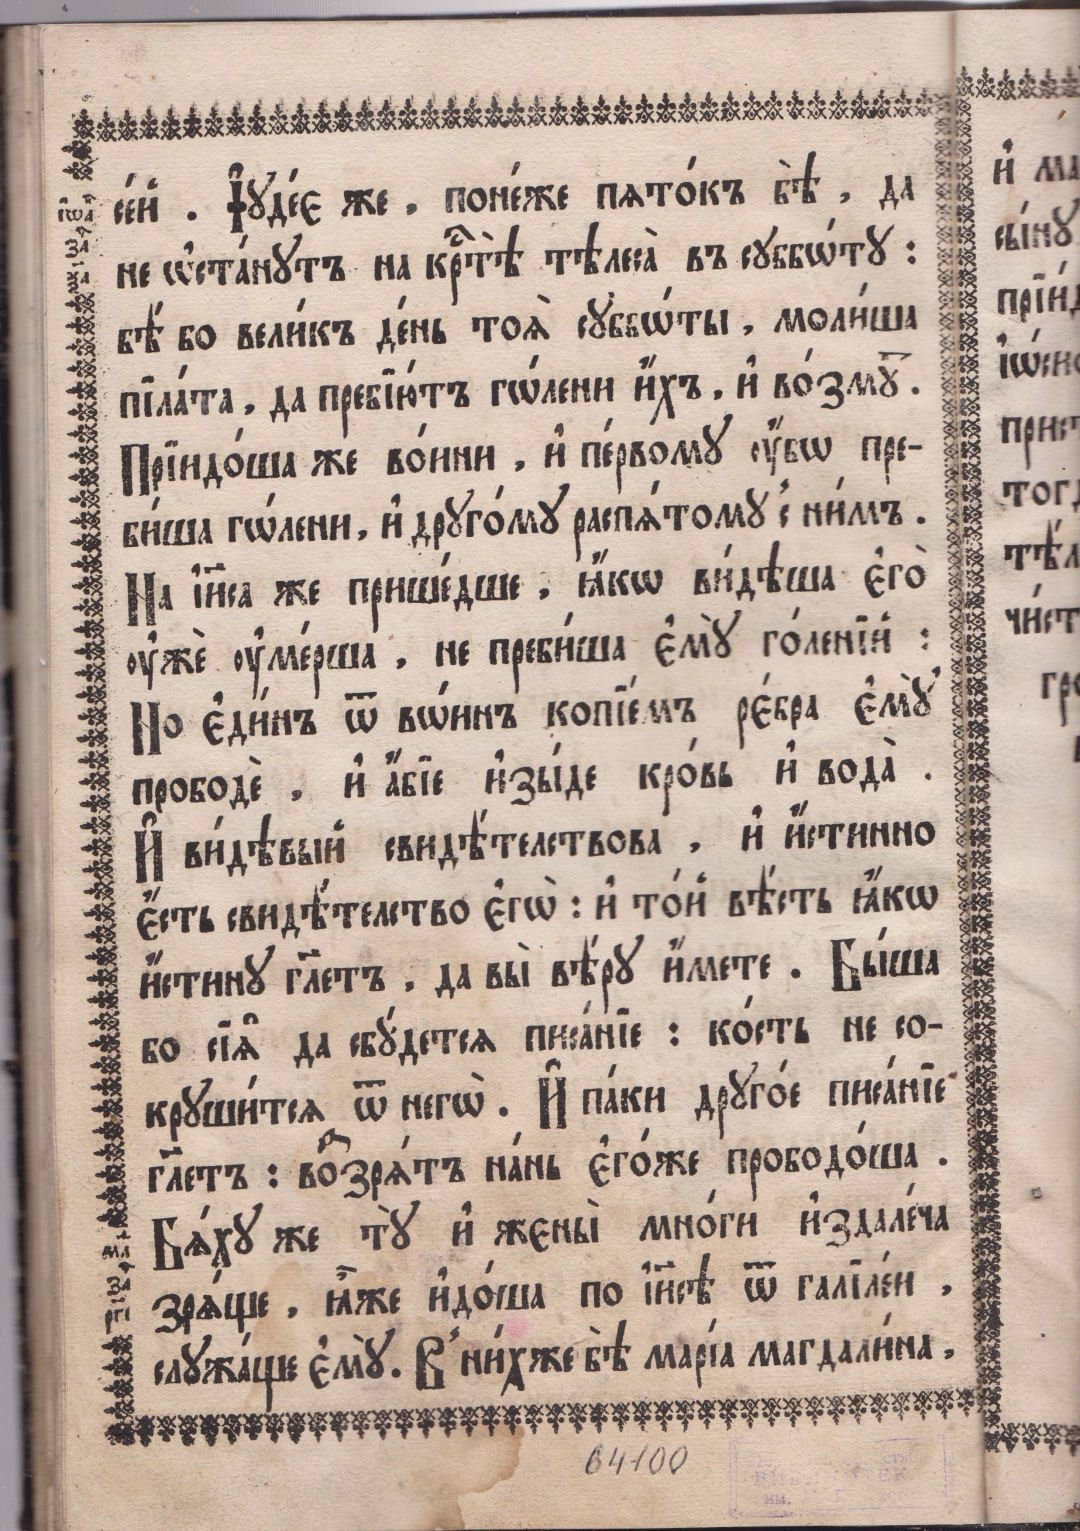 се́й . Іѹде́є же , поне́же пѧто́къ бѣ̀ , да
не ѡ҆ста́нутъ на крⷭ҇тѣ̀ тѣлеса̀ въ суббѡ́ту :
бѣ́ бо вели́къ де́нь тоѧ̀ суббѡ́ты , моли́ша
пїла́та , да пребїю́тъ гѡ́лени и҆́хъ , и҆ во́змꙋ .
Прїидо́ша же во́ини , и҆ пе́рвому ѹ҆́бѡ пре-
би́ша гѡ́лени , и҆ друго́му распѧ́тому с̾ ни́мъ .
На і҆и҃са же прише́дше , ꙗ҆́кѡ ви́дѣша є҆го̀
ѹ҆жѐ ѹ҆ме́рша , не преби́ша є҆мꙋ̀ го́ленїй :
Но є҆ди́нъ ѿ вѡ́инъ копїе́мъ ре́бра є҆мꙋ̀
прободѐ , и҆ а҆́бїе и҆зы́де кро́вь и҆ вода̀ .
И҆ ви́дѣвый свидѣ́телствова , и҆ и҆́стинно
є҆́сть свидѣ́телство є҆гѡ̀ : и҆ то́й вѣ́сть ꙗ҆́кѡ
и҆́стину гл҃етъ , да вы̀ вѣ́ру и҆́мете . Бы́ша
бо сїѧ̑ да сбꙋ́детсѧ писа́нїе : ко́сть не со-
круши́тсѧ ѿ негѡ̀ . И҆ па́ки друго́е писа́нїе
гл҃етъ : воⷥ҇зрѧ́тъ на́нь є҆го́же прободо́ша .
Бѧ́ху же тꙋ̀ и҆ жєны̀ мно́ги и҆здале́ча
зрѧ́ще , ꙗ҆̀же и҆до́ша по і҆и҃сѣ ѿ галїле́и ,
служа́ще є҆мꙋ̀ . В̾ ни́хже бѣ̀ марі́а магдали́на ,
64100